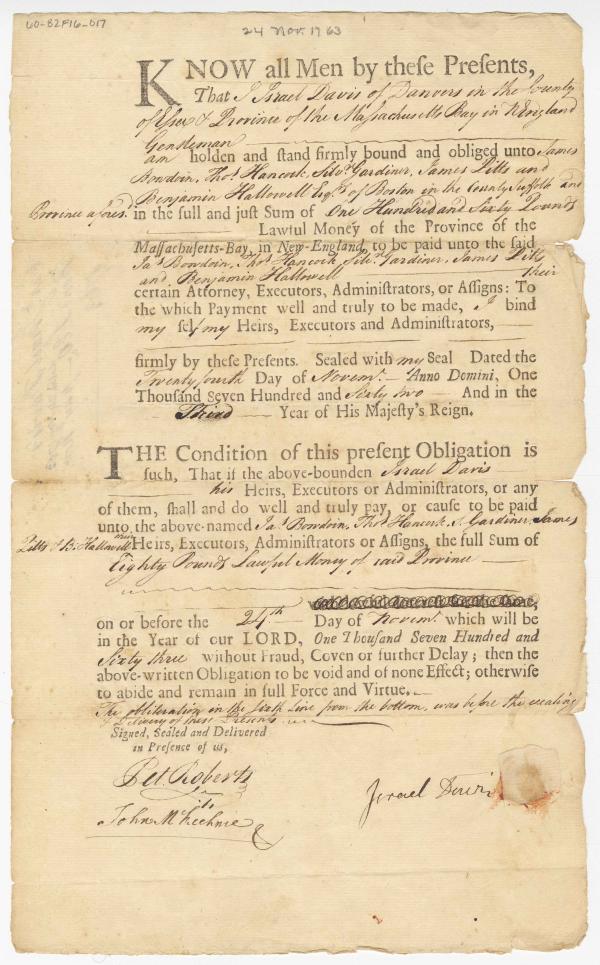 60-82F16-017
24 Nov. 1763
KNOW all Men by these Presents,
That I Israel Davis of Danvers in the County
of Essex & Province of the Massachusetts Bay in N England
Gentleman
am holden and stand firmly bound and obliged unto James
Bowdoin, Thos. Hancock, Silvr. Gardiner, James Pitts and
Benjamin Hallowell Esqrs. of Boston in the County Suffolk and
Province afores. in the full and just Sum of One Hundred and Sixty Pounds
Lawful Money of the Province of the
Massachusetts-Bay, in New-England, to be paid unto the said
Jas. Bowdoin, Thos. Hancock, Silvr. Gardiner, James Pitts
and Benjamin Hallowell their
certain Attorney, Executors, Administrators, or Assigns: To
the which Payment well and truly to be made, I bind
my self my Heirs, Executors and Administrators,
firmly by these Presents. Sealed with my Seal Dated the
Twenty fourth Day of Novemr. Anno Domini, One
Thousand Seven Hundred and Sixty two And in the
Third Year of His Majesty's Reign.
THE Condition of this present Obligation is
such, That if the above-bounden Israel Davis
his Heirs, Executors or Administrators, or any
of them, shall and do well and truly pay, or cause to be paid
unto the above-named Jas. Bowdoin, Thos. Hancock, S. Gardiner, James
Pitts & B. Hallowell their Heirs, Executors, Administrators or Assigns, the full Sum of
Eighty Pounds Lawful Money of said Province
on or before the 24th. Day of Novemr. which will be
in the Year of our LORD, One Thousand Seven Hundred and
Sixty three without Fraud, Coven or further Delay; then the
above-written Obligation to be void and of none Effect; otherwise
to abide and remain in full Force and Virtue.
The obliteration in the Sixth Line from the bottom, was before the sealing
& Delivery of these Presents
Signed, Sealed and Delivered
in Presence of us,
Pet. Roberts
Israel Davis
John McKechnie